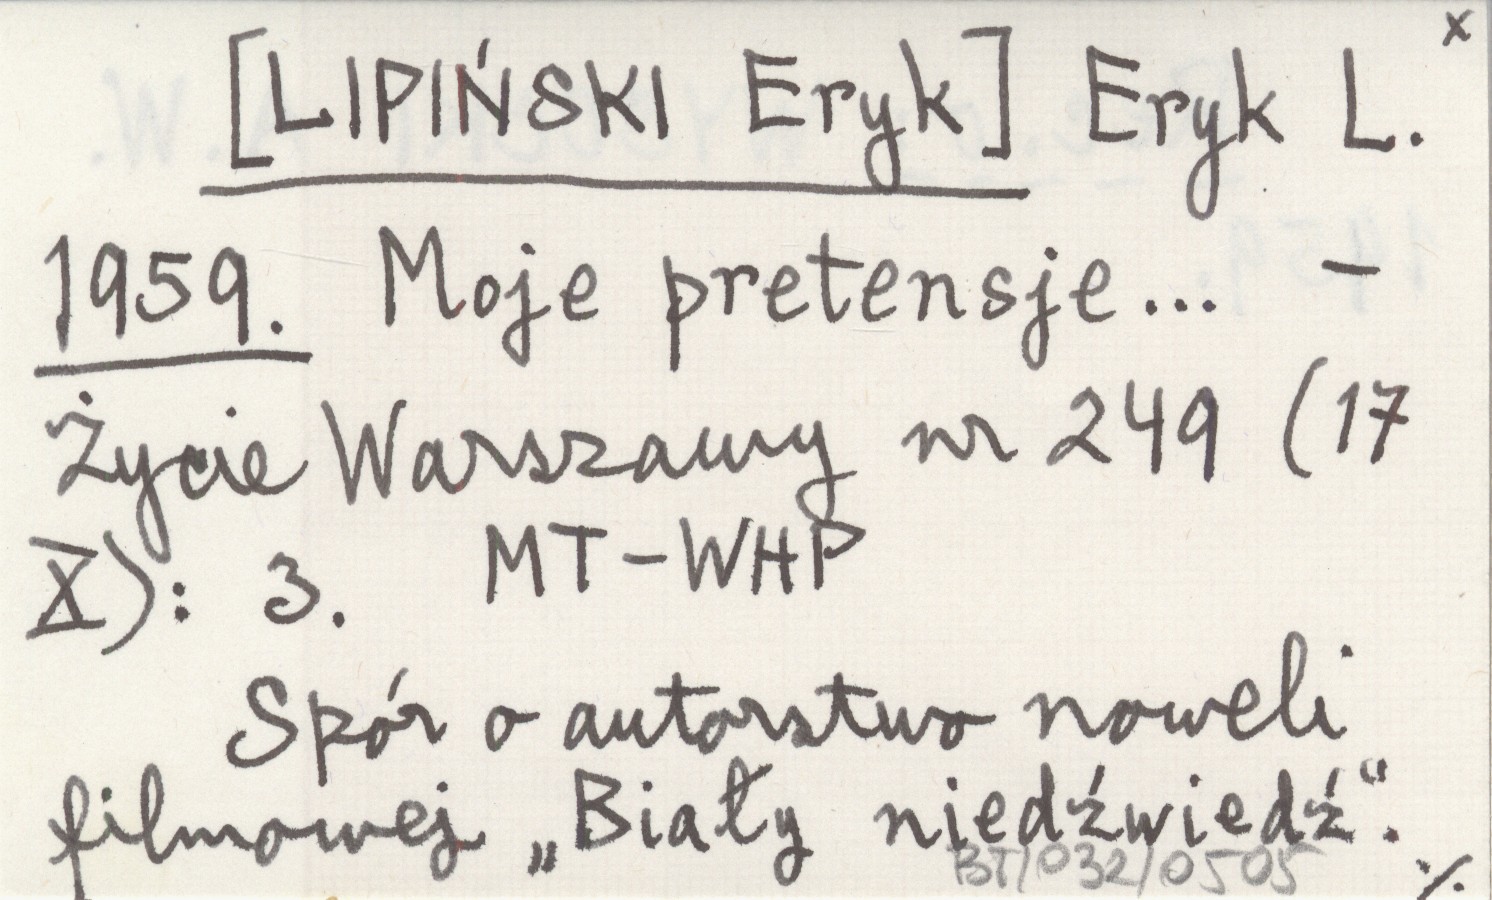 x
[LIPIŃSKI Eryk] Eryk L.
1959. Moje pretensje... –
Życie Warszawy nr 249 (17
X): 3. MT-WHP
Spór o autorstwo noweli
filmowej „Biały niedźwiedź“.
BT/032/0505 ./.